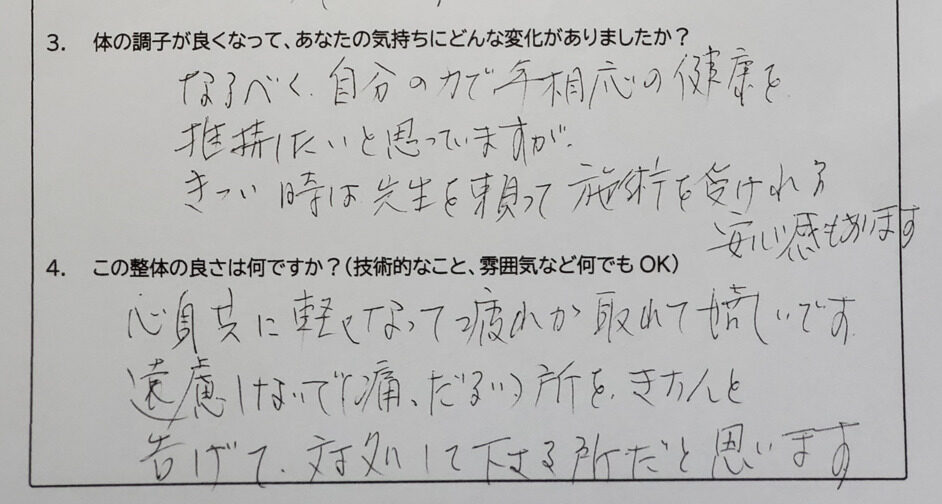 3. 体の調子が良くなって、あなたの気持ちにどんな変化がありましたか？
なるべく、自分の力で年相応の健康を
維持したいと思っていますが、
きつい時は先生を頼って施術を受けれる
安心感もあります
4. この整体の良さは何ですか？（技術的なこと、雰囲気など何でもOK）
心身共に軽くなって疲れが取れて嬉しいです
遠慮しないで（痛、だるい）所を、きちんと
告げて、対処して下さる所だと思います